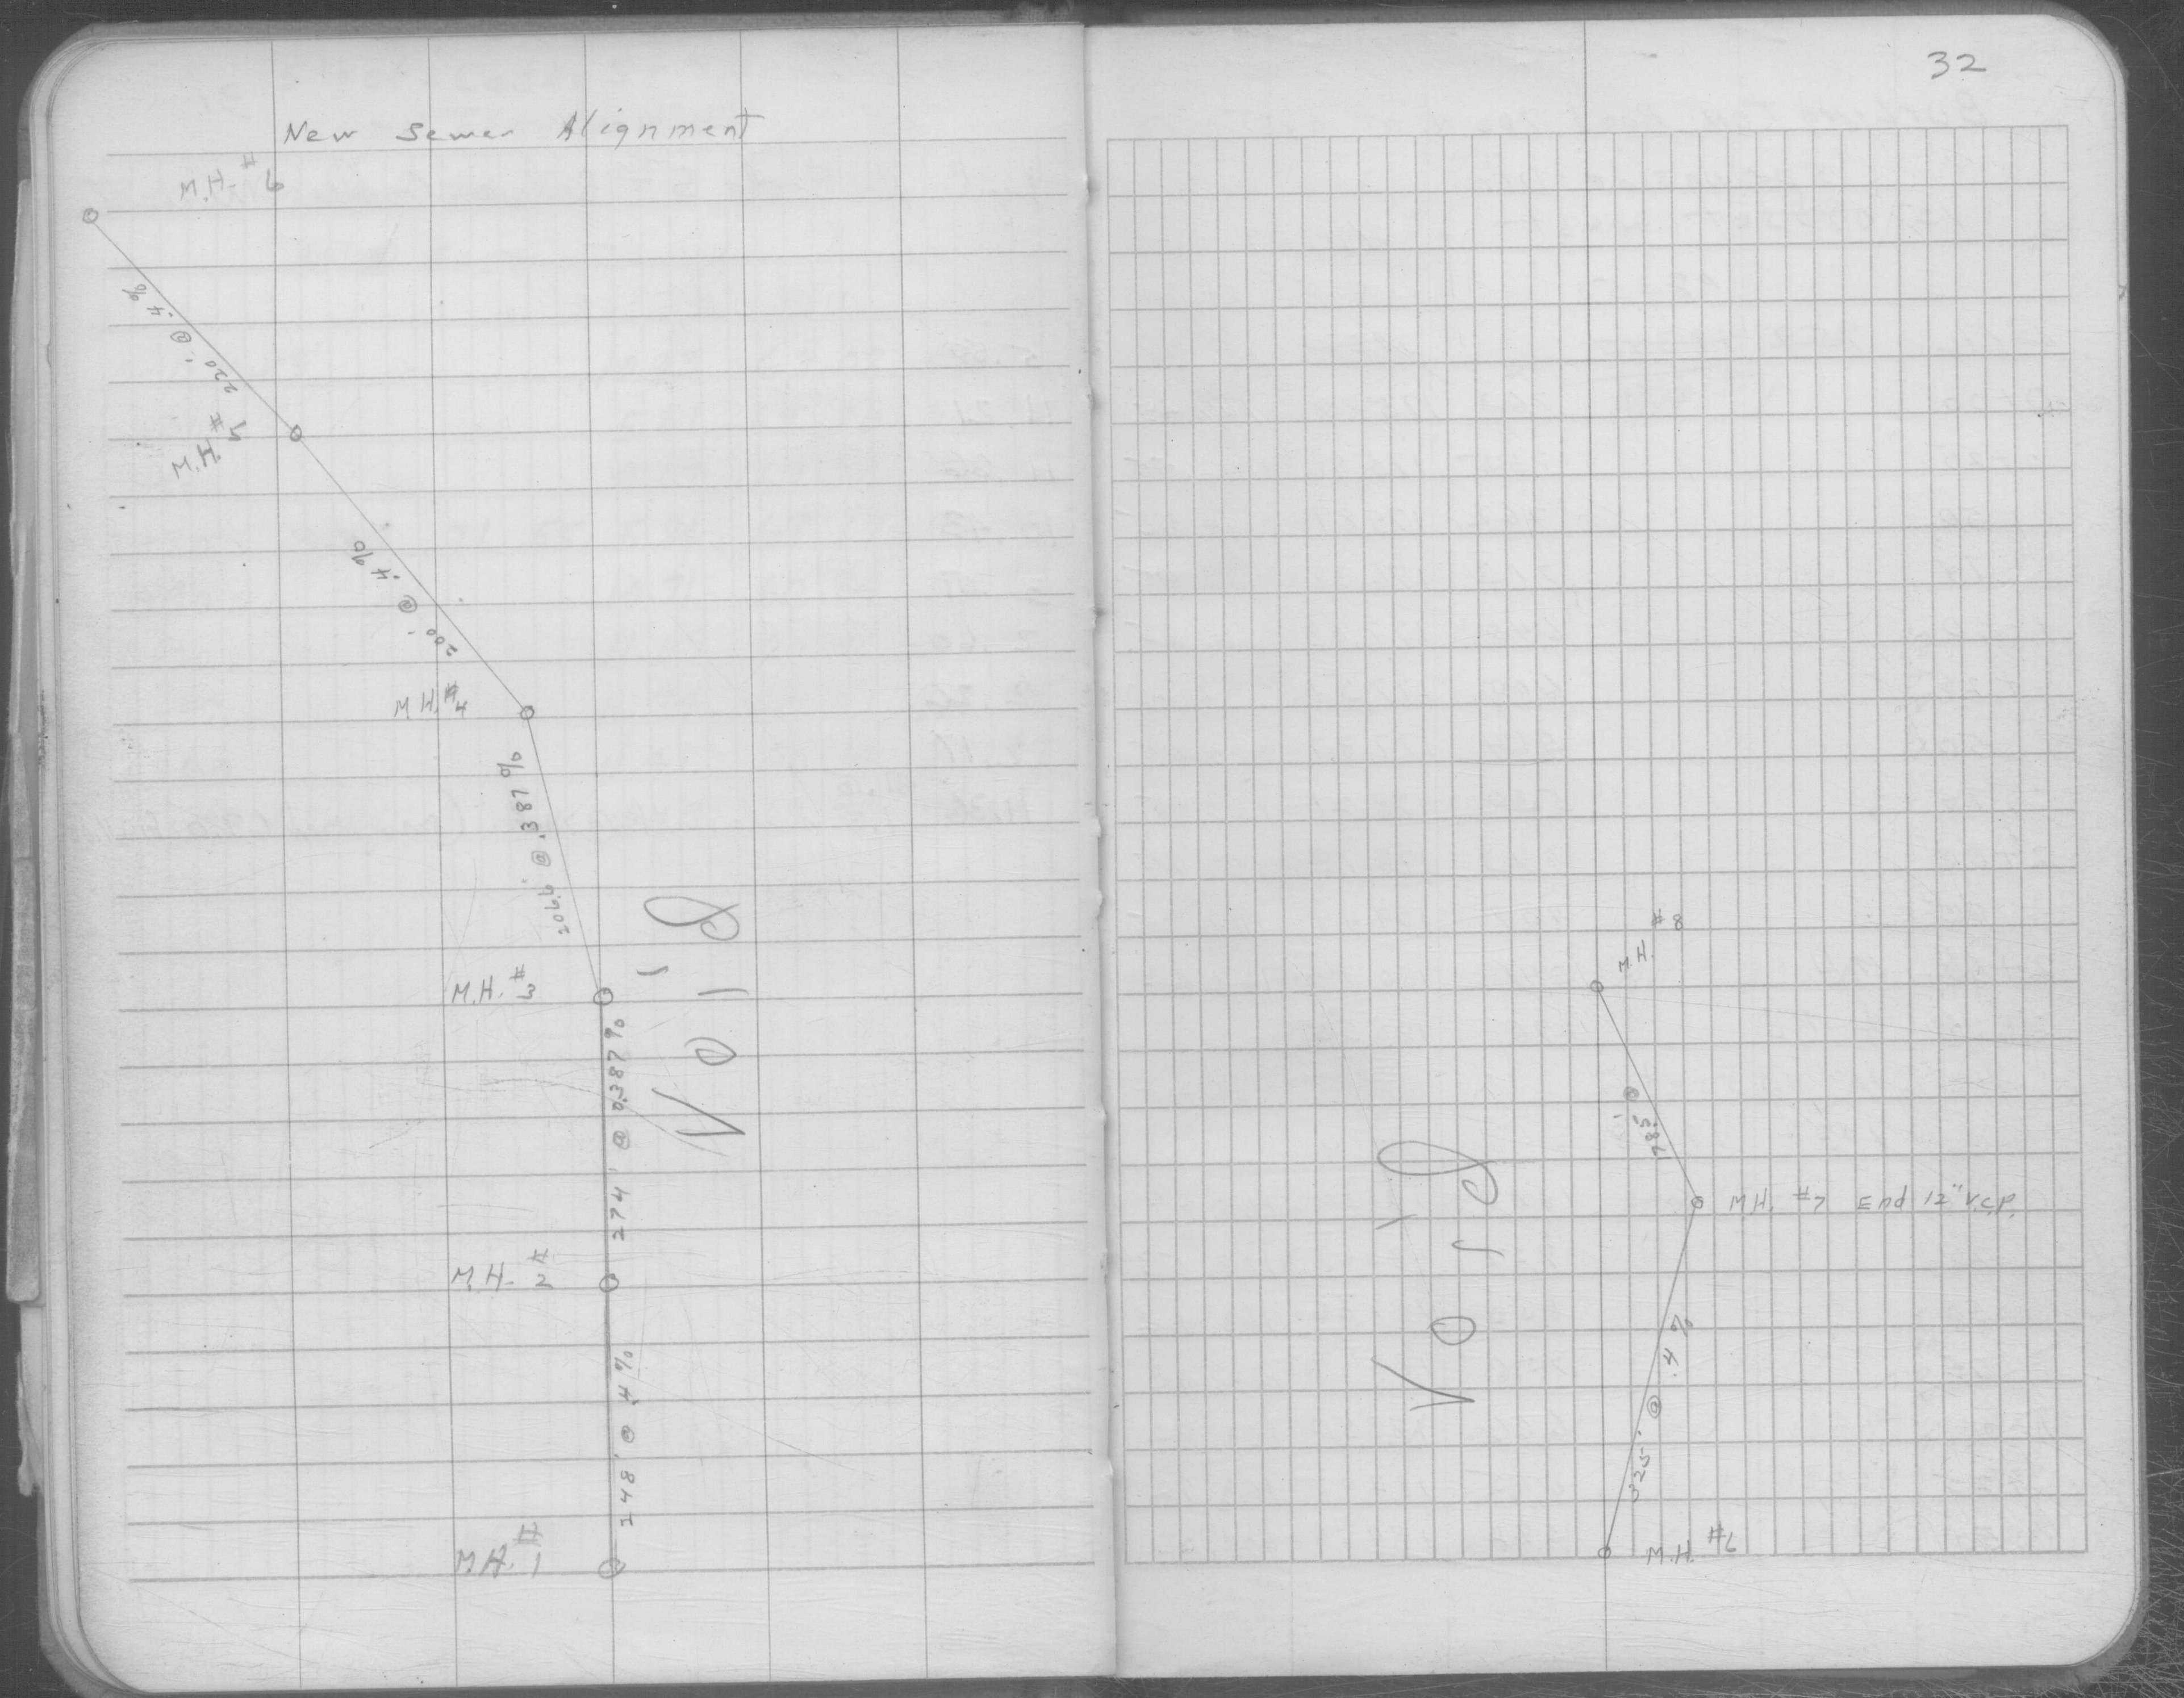 32
New Sewer Alignment
M.H. #6
220' @ .4 %
M.H. #5
200' @ .4 %
M.H. #4
206.6' @ .387 %
M.H. #3
Void
274' @ 0.387 %
M.H. #2
248' @ .4 %
M.H. #1
M.H. #8
185' @
Void
M.H. #7 End 12" V.C.P.
325' @ .4 %
M.H. #6